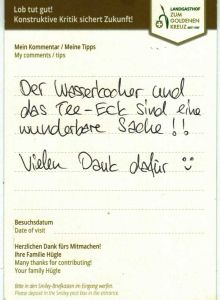 Lob tut gut!
Konstruktive Kritik sichert Zukunft!
LANDGASTHOF
ZUM
GOLDENEN
KREUZ
Mein Kommentar / Meine Tipps
My comments / tips
Der Wasserkocher und
das Tee-Eck sind eine
wunderbare Sache!!
Vielen Dank dafür
Besuchsdatum
Date of visit
Herzlichen Dank fürs Mitmachen!
Ihre Familie Hügle
Many thanks for contributing!
Your family Hügle
Bitte in den Smiley-Briefkasten im Eingang werfen.
Please deposit in the Smiley post box in the entrance.